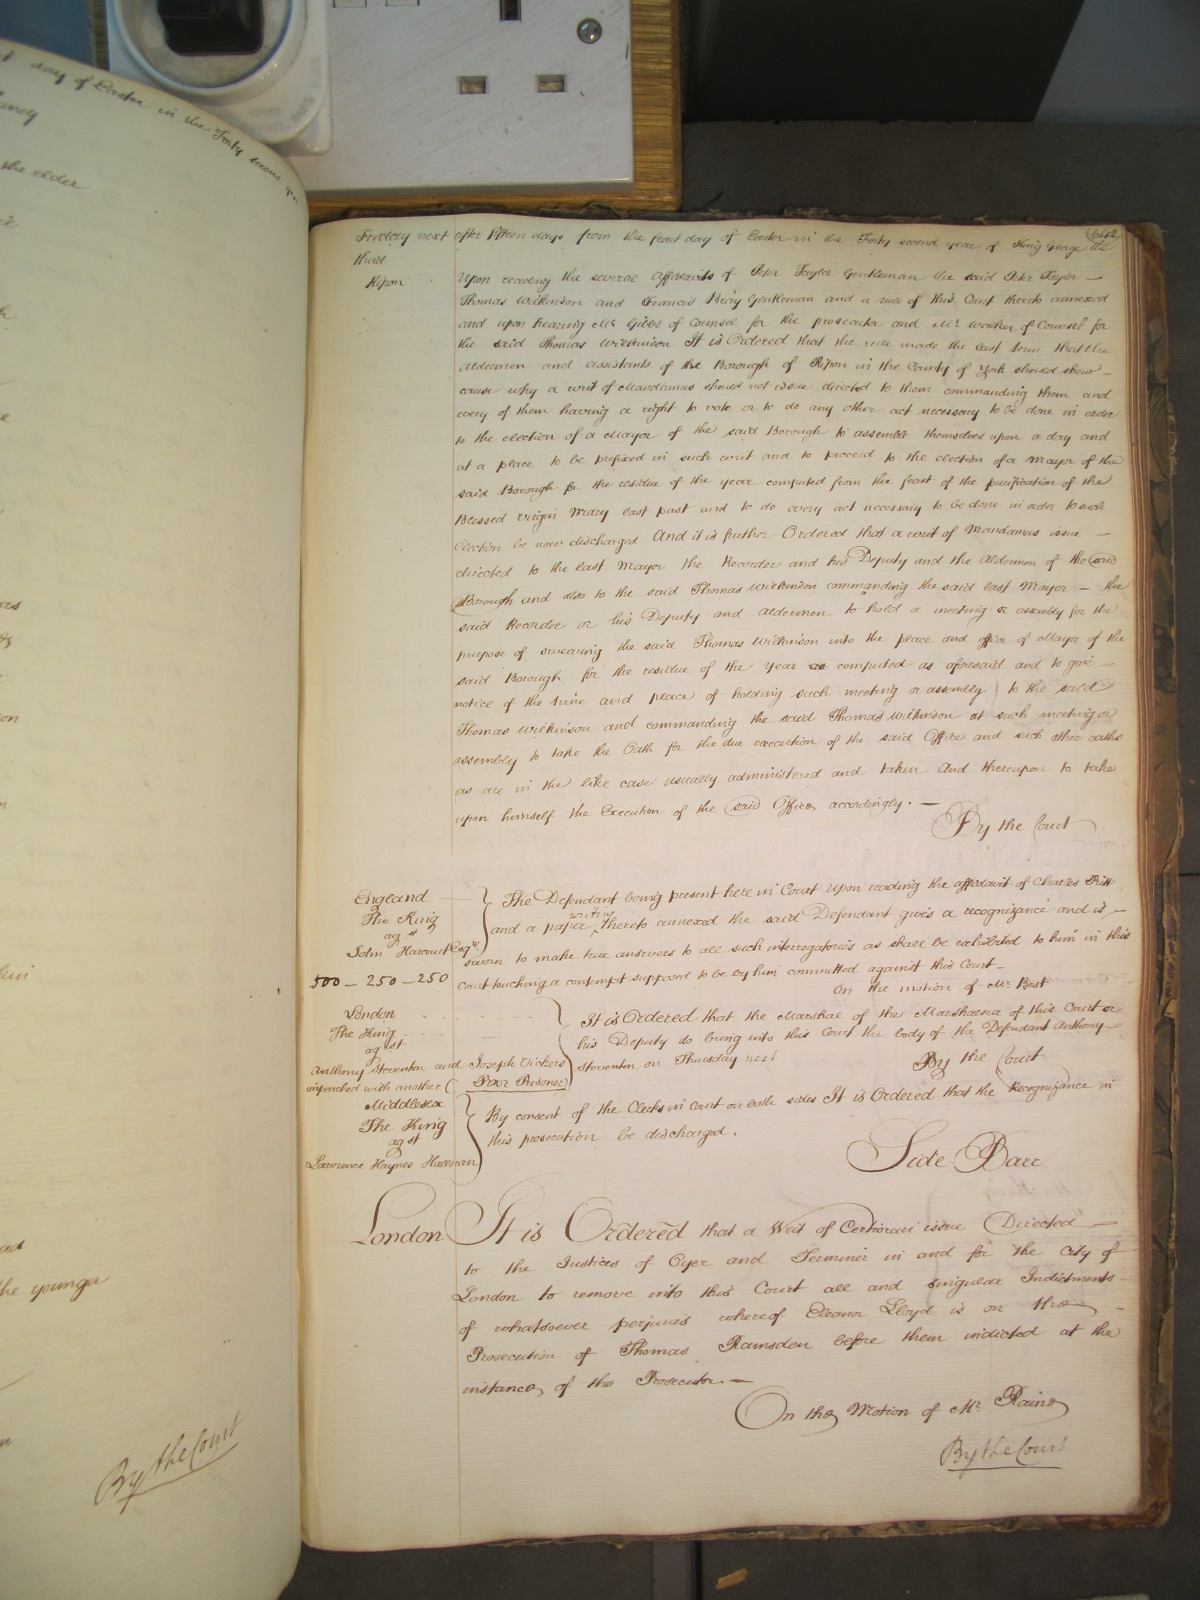 t day of Easter in the Forty second year
the elder
the younger
By the Court
Friday next after fifteen days from the feast day of Easter in the Forty second year of King George the
Third
Ripon
Upon reading the several Affidavits of Peter Taylor Gentleman the said Peter Taylor —
Thomas Wilkinson and Francis Gentleman and a rule of this Court thereto annexed
and upon hearing Mr. Gibbs of Counsel for the prosecutor and Mr. of Counsel for
the said Thomas Wilkinson It is Ordered that the rule made the last term that the
aldermen and assistants of the Borough of Ripon in the County of York should shew —
cause why a writ of Mandamus should not issue directed to them commanding them and
every of them having a right to vote or to do any other act necessary to be done in order
to the election of a Mayor of the said Borough to assemble themselves upon a day and
at a place to be prefixed in such writ and to proceed to the election of a Mayor of the
said Borough for the residue of the year computed from the feast of the purification of the
Blessed Virgin Mary last past and to do every act necessary to be done in order to such
Election be now discharged And it is further Ordered that a writ of Mandamus issue —
directed to the last Mayor the Recorder and his Deputy and the Aldermen of the said
Borough and also to the said Thomas Wilkinson commanding the said last Mayor — the
said Recorder or his Deputy and aldermen to hold a meeting or assembly for the
purpose of swearing the said Thomas Wilkinson into the place and office of Mayor of the
said Borough for the residue of the year computed as aforesaid and to give —
notice of the time and place of holding such meeting or assembly to the said
Thomas Wilkinson and commanding the said Thomas Wilkinson at such meeting or
assembly to take the Oath for the due execution of the said Office and such other oaths
as are in the like case usually administered and taken And thereupon to take
upon himself the Execution of the said Office accordingly. —
By the Court
England
The King
agst
John Harcourt Esqr.
500 — 250 — 250
The Defendant being present here in Court upon reading the affidavit of Charles
and a paper writing thereto annexed the said Defendant gives a recognizance and is —
sworn to make true answers to all such interrogatories as shall be exhibited to him in this
Court touching a contempt supposed to be by him committed against this Court —
On the motion of Mr. Best
London
The King
agst
Anthony Steventon and Joseph Vickers
impeached with another
Poor Prisoner
It is Ordered that the Marshal of the Marshalsea of this Court or
his Deputy do bring into this Court the body of the Defendant Anthony
Steventon on Thursday next
By the Court
Middlesex
The King
agst
Lawrence Haynes
By consent of the Clerks in Court on both sides It is Ordered that the Recognizance in
this prosecution be discharged.
Side Barr
London
It is Ordered that a Writ of Certiorari issue Directed —
to the Justices of Oyer and Terminer in and for the city of
London to remove into this Court all and singular Indictments
of whatsoever perjuries whereof Eleanor Lloyd is on the —
Prosecution of Thomas Ramsden before them indicted at the
instance of the Prosecutor. —
On the Motion of Mr. Raine
By the Court